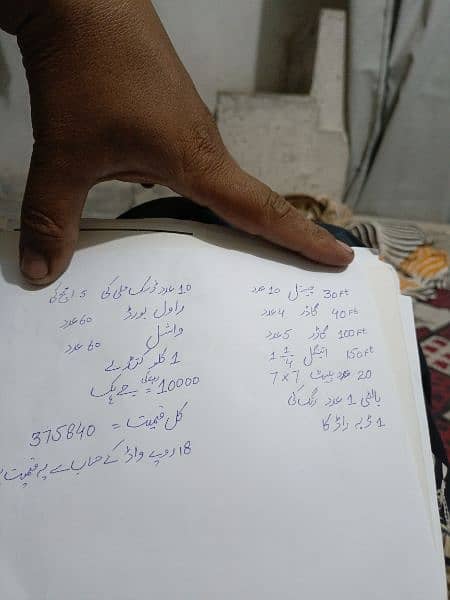 30 Ft چینل 10 عدد
40 Ft گاڈر 4 عدد
100 Ft گاڈر 5 عدد
150 Ft اینگل 1 1/4
20 عدد پلیٹ 7×7
بالٹی 1 عدد رنگ کی
1 ڈبہ راڈ کا
10 عدد ڈسک ملی کی 5 انچ کی
راول بورڈ 60 عدد
واشل 60 عدد
1 کلو
10000 =
کل قیمت = 375840
18 روپے واڈ کے حساب سے یہ قیمت